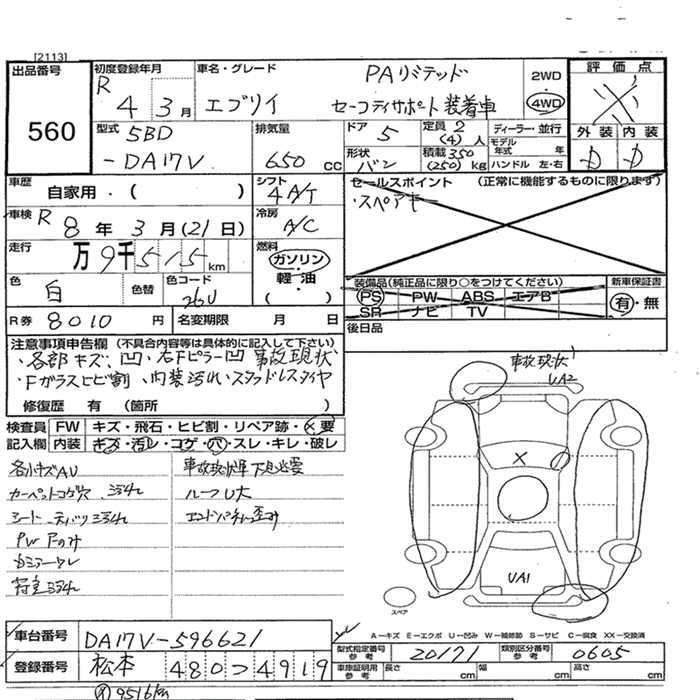 [2113]
出品番号
560
初度登録年月
R 4年 3月
車名・グレード
エブリイ
PAリミテッド
セーフティサポート装着車
2WD
4WD
評価点
外装 内装
D D
型式
5BD
-DA17V
排気量
650 cc
ドア 5
形状 バン
定員 2 (4) 人
積載 350 (250) kg
ディーラー・並行
モデル年式 年
ハンドル 左・右
車歴
自家用・( )
シフト
4A/T
セールスポイント (正常に機能するものに限ります)
・スペアキー
車検 R 8年 3月(21日)
冷房
A/C
走行
万 9千 5 1 5 km
燃料
ガソリン
軽油・
( )
色
白
色替
色コード
26U
装備品(純正品に限り○をつけてください)
PS PW ABS エアB
SR ナビ TV
新車保証書
有・無
R券 8010 円
名変期限 月 日
後日品
注意事項申告欄 (不具合内容等は具体的に記入して下さい)
・各部キズ、凹・右Fピラー凹 事故現状
・Fガラスヒビ割 ・内装汚れ・スタッドレスタイヤ
修復歴 有 (箇所 )
事故現状
UA2
検査員 FW キズ・飛石・ヒビ割・リペア跡・×要
記入欄 内装 キズ・汚レ・コゲ・穴・スレ・キレ・破レ
各小キズAU
カーペットコゲ穴
シート
PW
事故現状車 下見必要
ルーフU大
UA1
スペア
A－キズ E－エクボ U－凹み W－補修跡 S－サビ C－腐食 XX－交換済
車台番号 DA17V-596621
登録番号 松本 480 4919
型式指定番号 参考 20171
類別区分番号 参考 0605
車庫証明用 参考 長さ cm 幅 cm 高さ cm
9516km